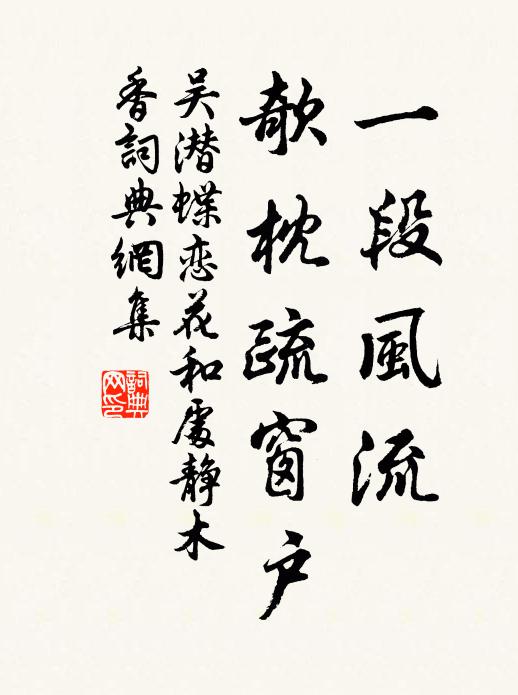 一段風流
欹枕疏窗户
吴潜蝶恋花和處静木
香詞典網集
詞典
网印